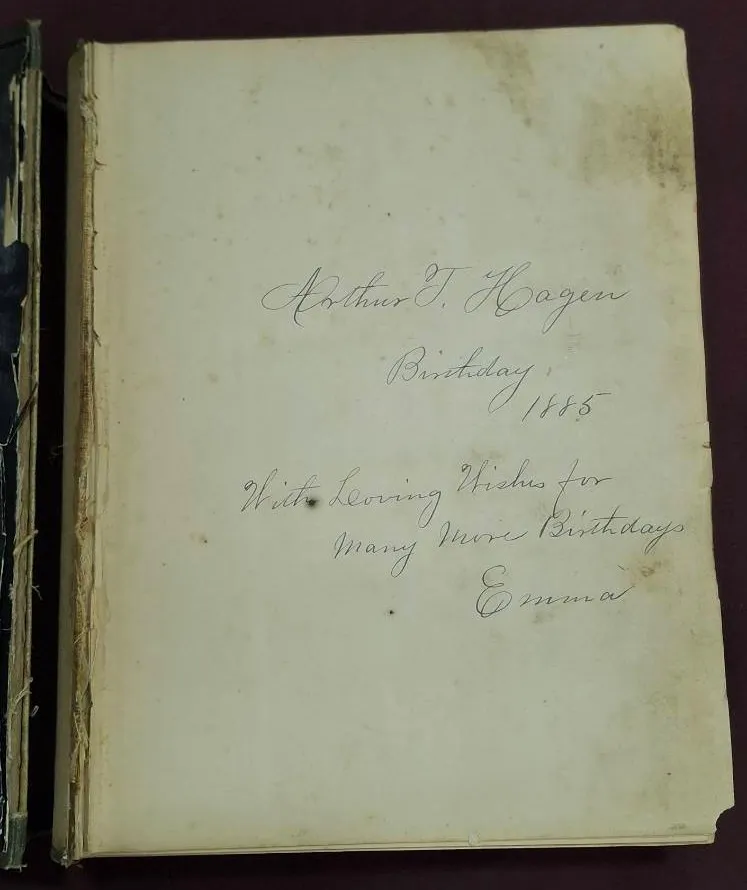 Arthur T. Hagen
Birthday
1885
With Loving Wishes for
Many More Birthdays
Emma